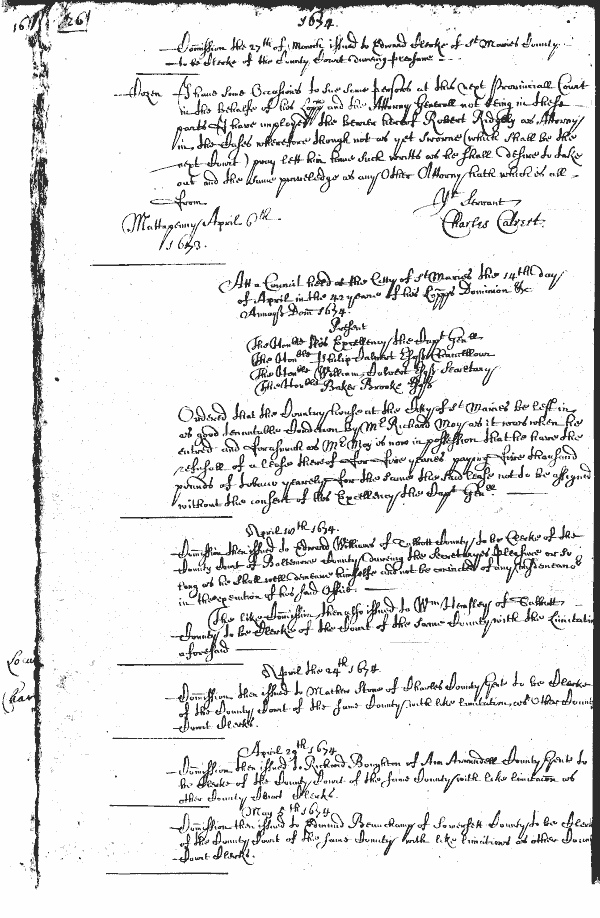 26
1674.
Comission the 27th of March issued to Edward Clerke of St Maries County
to be Clerke of the County Court dureing pleasure
I have some Occasions to sue some persons at this next Provinciall Court
in the behalfe of his and the Attorney Generall not being in these
parts I have imployed the bearer hereof Robert Ridgely as Attorney
in the Cases wherefore though not as yet sworne (which shall be the
next Court) pray lett him have such writts as he shall desire to take
out and the same priviledge as any Other Attorny hath which is all
from
Yr Servant
Mattapeny April 6th
Charles Calvert.
1673.
Att a Council held at the Citty of St Maries the 14th day
of April in the 42 yeare of his Lopps Dominion &c
Annoq Dom 1674.
Present
The Honble His Excellency the Capt Genll
The Honble Philip Calvert Esqr Chancellour
The Honble William Calvert Esqr Secretary
The Honble Baker Brooke Esqr
Ordered that the Country house at the Citty of St Maries be left in
as good tenantable Condition by Mr Richard Moy as it was when he
entred and forasmuch as Mr Moy is now in possession that he have the
refusall of a lease thereof for five yeares paying five thousand
pounds of tobacco yearely for the same the said lease not to be assigned
without the consent of his Excellency the Capt Genll
April 1674.
Comission then issued to Edward Williams of Talbott County to be Clerke of the
County Court of Baltemore County dureing the Secretaryes pleasure or so
long as he shall well demeane himselfe and not be convicted of any
in the execution of his said Office.
The like Comission then also issued to Wm Hemsley of Talbott
County to be Clerke of the Court of the same County with the Limitation
aforesaid
April the 24th 1674.
Comission then issued to Mathew Stone of Charles County Gent to be Clerke
of the County Court of the same County with like limitation as Other County
Court Clerks.
April 29th 1674
Comission then issued to Richard Boughton of Ann Arundell County Gent to
be Clerke of the County Court of the same County with like limitacon as
other County Court Clerks.
May 1674
Comission then issued to Edmund Beauchamp of Somersett County to be Clerk
of the County Court of the same County with like limitions as other County
Court Clerks.